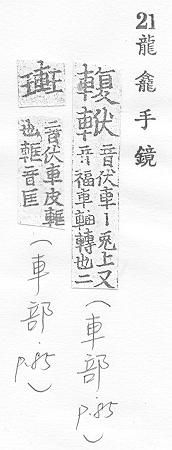 21 龍龕手鏡
輹
音伏車丨兎上又
音福車軸轉也二
(車部·p.85)
音伏車皮軭
也軭音匡
(車部·p.85)